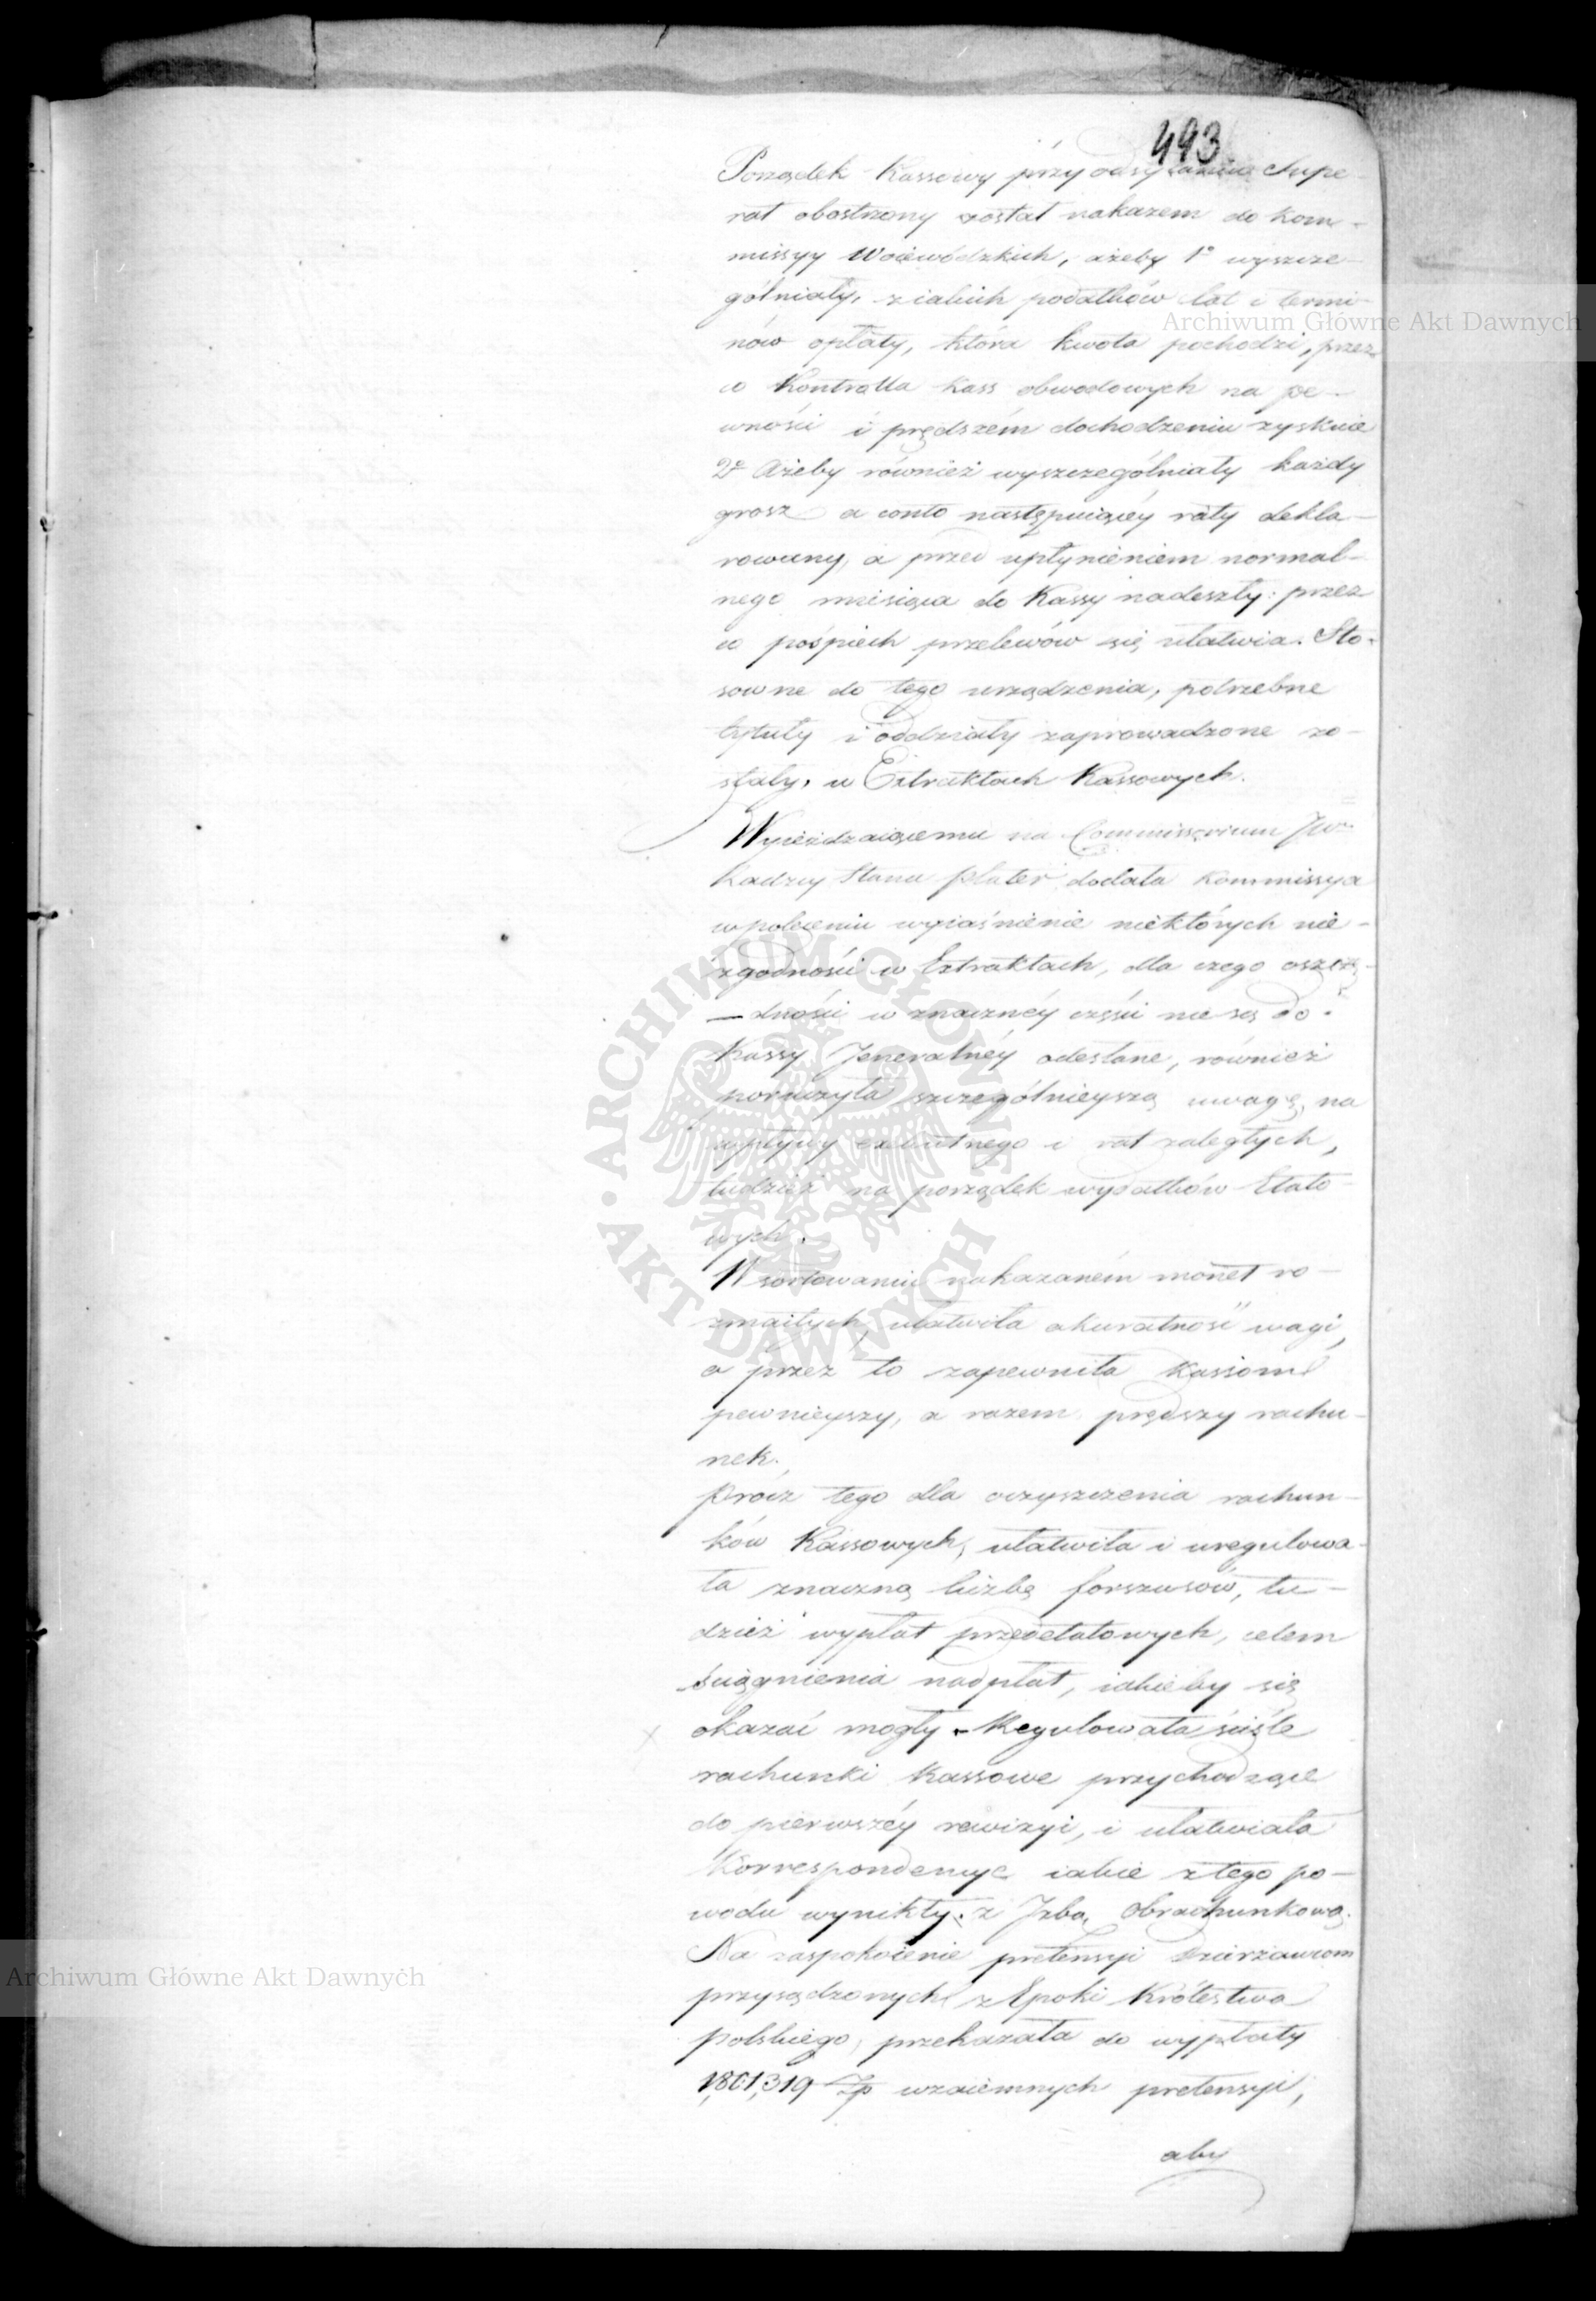 493
Porządek Kassowy przy odsyłaniu Supe-
rat obostrzony został nakazem do Kom-
missyy Woiewódzkich, ażeby 1° wyszcze-
gólniały, z iakich podatków lat i termi-
nów opłaty, która kwota pochodzi, przez
co Kontrolla Kass obwodowych na pe-
wności i prędszém dochodzeniu zyskuie
2° Ażeby również wyszczególniały każdy
grosz a conto następuiącéy raty dekla-
rowany, a przed upłynieniem normal-
nego miesiąca do Kassy nadeszły: przez
co pośpiech przelewów się ułatwia. Sto-
sowne do tego urządzenia, potrzebne
tytuły i oddziały zaprowadzone zo-
stały, w Extraktach Kassowych.
Wyieżdzaiącemu na Commissorium JW
Radcy Stanu Plater dodała Kommissya
w poleceniu wyiaśnienie niektórych nie-
zgodności w Extraktach, dla czego oszczę-
dności w znacznéy części nie są do
Kassy Jeneralnéy odesłane, również
poruczyła szczególnieyszą uwagę, na
wpływy exekutnego i rat zaległych,
tudzież na porządek wydatków Etato-
wych.
W sortowaniu nakazaném monet ro-
zmaitych, ułatwiła akuratność wagi,
a przez to zapewniła Kassom
pewnieyszy, a razem prędszy rachu-
nek.
Prócz tego dla oczyszczenia rachun-
ków Kassowych, ułatwiła i uregulowa-
ła znaczną liczbę forszusów, tu-
dzież wypłat przedetatowych, celem
ściągnienia nadpłat, iakieby się
okazać mogły. Regulowała ściśle
rachunki Kassowe przychodzące
do pierwszéy rewizyi, i ułatwiała
Korrespondencye iakie z tego po-
wodu wynikły z Izbą Obrachunkową.
Na zaspokoienie pretensyi Dzierżawcom
przysądzonych z Epoki Królestwa
polskiego, przekazała do wypłaty
1,801,319 Zp wzaiemnych pretensyi,
aby
Archiwum Główne Akt Dawnych
ARCHIWUM GŁÓWNE AKT DAWNYCH
Archiwum Główne Akt Dawnych